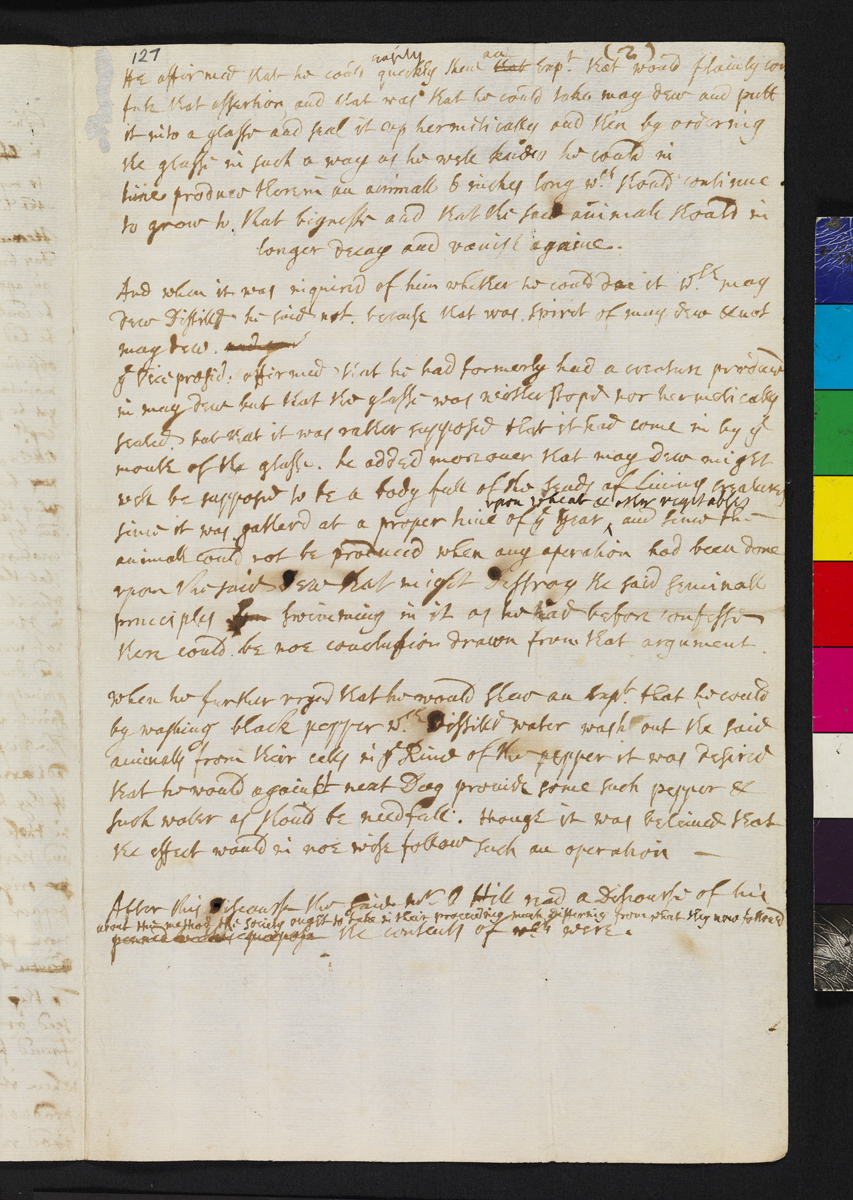 127
(2)
He affirmed that he could easily quickly shew an that Expt. that would plainly con
fute that assertion and that was that he could take may dew and putt
it into a glasse and seal it up hermetically and then by ordering
the glasse in such a way as he well knew he could in
time produce therein an animall 6 inches long wch should continue
to grow to that bignesse and that the said animall should in
longer decay and vanish againe.
And when it was inquired of him whether he could doe it wth may
dew Distilld he said not. because that was spirit of may dew & not
may dew.
ye Vice presid: affirmed that he had formerly had a creature produced
in may dew but that the glasse was neither stopd nor hermetically
sealed but that it was rather supposed that it had come in by ye
mouth of the glasse. he added moreover that may dew might
well be supposed to be a body full of the seeds of Living creatures
upon wheat & other vegetables
since it was gatherd at a proper time of ye year, and since the
animall could not be produced when any operation had been done
upon the said Dew that might Destroy the said seminall
principles swimming in it as he had before confesst
there could be noe conclusion drawn from that argument.
When he further urged that he would shew an Expt. that he could
by washing black pepper wth Distilld water wash out the said
animalls from their cells in ye Rind of the pepper it was desired
that he would against next Day provide some such pepper &
such water as should be needfull. though it was beleived that
the effect would in noe wise follow such an operation —
After this Discourse the said mr. Hill read a Discourse of his
about the method the Society ought to take in their proceedings much differing from what they now followed
the contents of wch were.